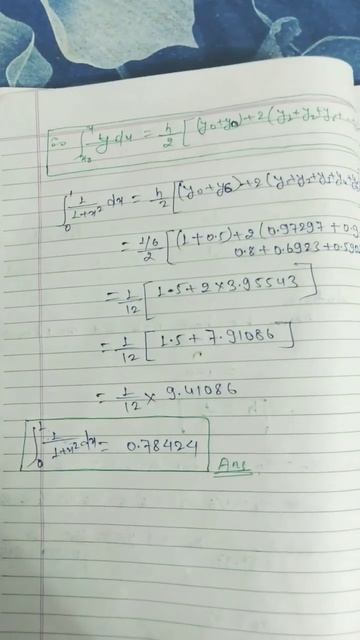 ∴ ∫ y dx = h/2 [(y₀+y₆)+2(y₁+y₂+y₃
∫₀¹ 1/1+x² dx = h/2 [(y₀+y₆)+2(y₁+y₂+y₃+y₄+y₅
= 1/6/2 [(1+0.5)+2(0.97297+0.9
0.8+0.6923+0.590
= 1/12 [1.5+2×3.95543]
= 1/12 [1.5+7.91086]
= 1/12 × 9.41086
∫₀¹ 1/1+x² dx = 0.78424
Ans